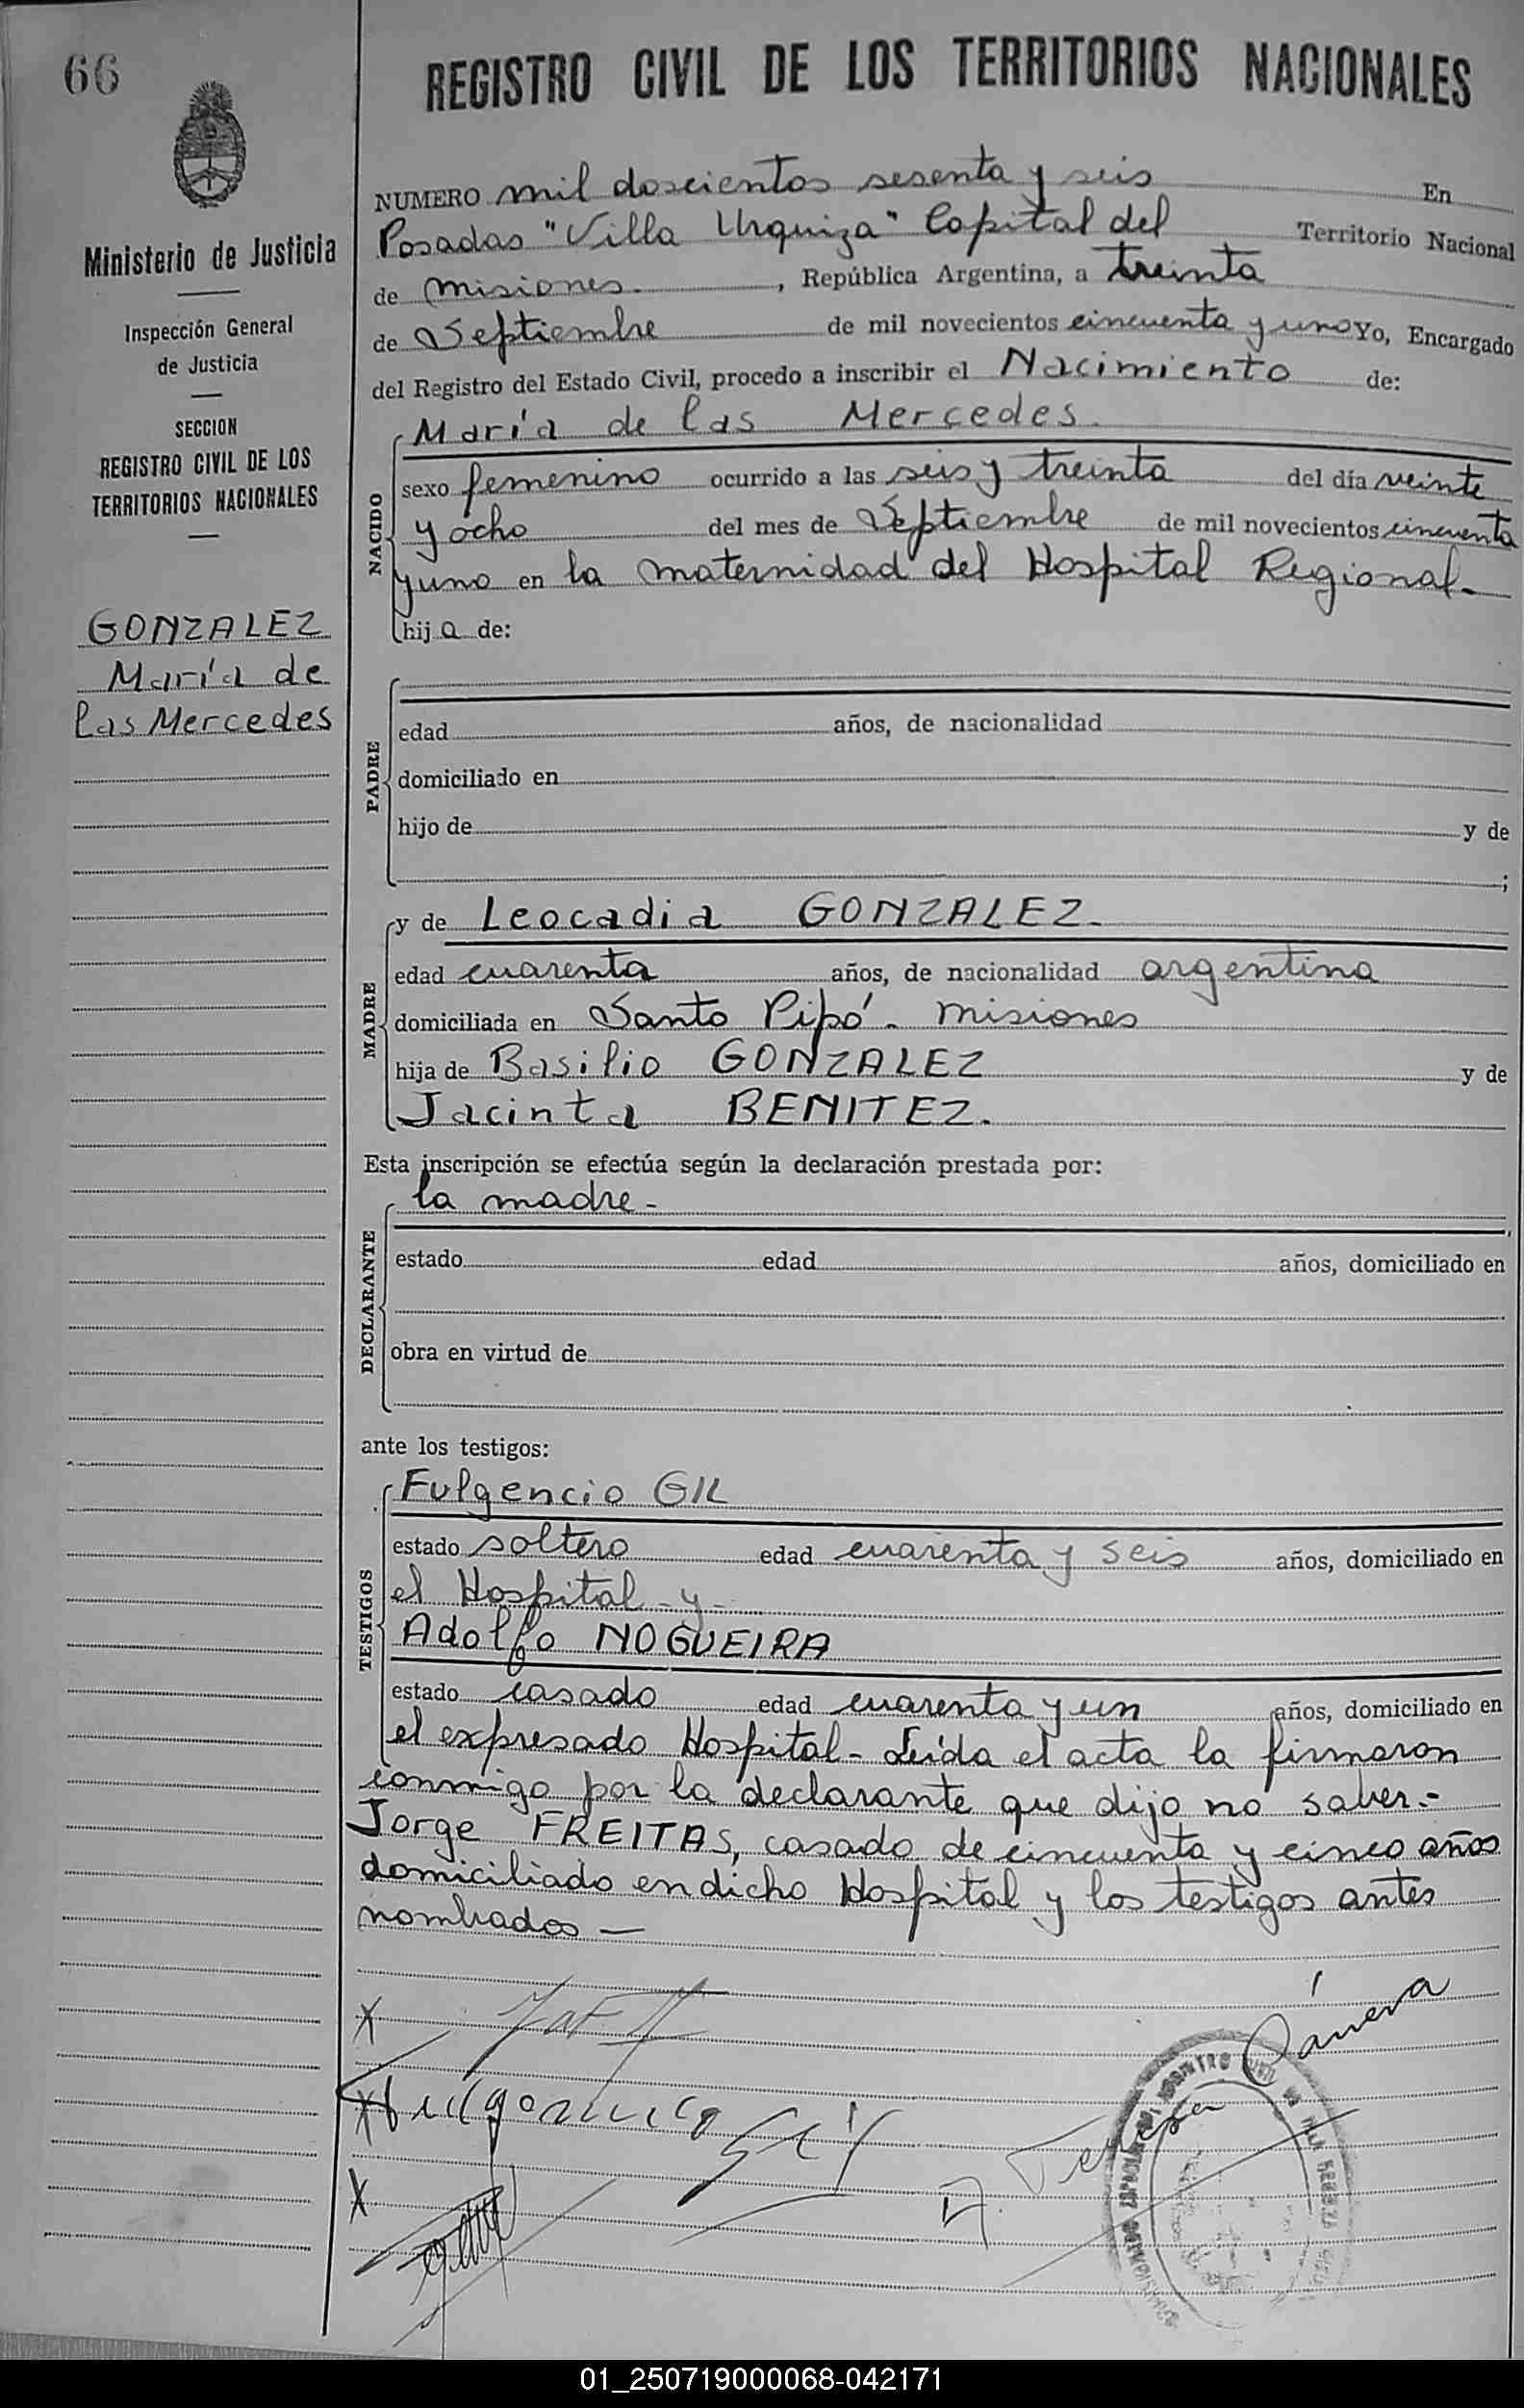 66
REGISTRO CIVIL DE LOS TERRITORIOS NACIONALES
Ministerio de Justicia
Inspección General
de Justicia
SECCION
REGISTRO CIVIL DE LOS
TERRITORIOS NACIONALES
GONZALEZ
María de
las Mercedes
NUMERO mil doscientos sesenta y seis En
Posadas "Villa Urquiza" Capital del Territorio Nacional
de misiones. , República Argentina, a treinta
de Septiembre de mil novecientos cincuenta y uno Yo, Encargado
del Registro del Estado Civil, procedo a inscribir el Nacimiento de:
NACIDO
María de las Mercedes.
sexo femenino ocurrido a las seis y treinta del día veinte
y ocho del mes de Septiembre de mil novecientos cincuenta
y uno en la maternidad del Hospital Regional.
hij a de:
PADRE
edad años, de nacionalidad
domiciliado en
hijo de y de
;
MADRE
y de Leocadia GONZALEZ.
edad cuarenta años, de nacionalidad argentina
domiciliada en Santo Pipó. misiones
hija de Basilio GONZALEZ y de
Jacinta BENITEZ.
Esta inscripción se efectúa según la declaración prestada por:
DECLARANTE
la madre -
estado edad años, domiciliado en
obra en virtud de
ante los testigos:
TESTIGOS
Fulgencio GIL
estado soltero edad cuarenta y seis años, domiciliado en
el Hospital - y -
Adolfo NOGUEIRA
estado casado edad cuarenta y un años, domiciliado en
el expresado Hospital - Leída el acta la firmaron
conmigo por la declarante que dijo no saber.-
Jorge FREITAS, casado de cincuenta y cinco años
domiciliado en dicho Hospital y los testigos antes
nombrados —
X
X Fulgencio Gil
X
A. Teresa
01_250719000068-042171